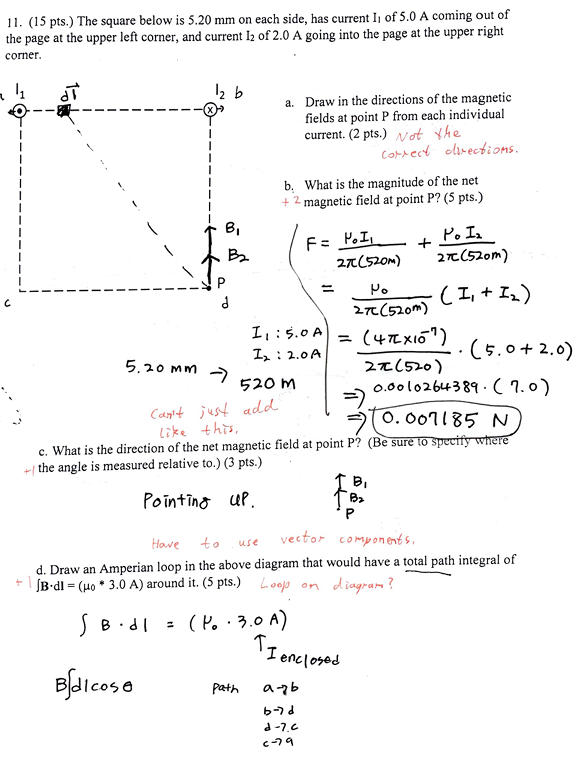 11. (15 pts.) The square below is 5.20 mm on each side, has current I₁ of 5.0 A coming out of
the page at the upper left corner, and current I₂ of 2.0 A going into the page at the upper right
corner.
I₁ dl I₂ b
a. Draw in the directions of the magnetic
fields at point P from each individual
current. (2 pts.) Not the
correct directions.
b. What is the magnitude of the net
+2 magnetic field at point P? (5 pts.)
B₁
B₂
P
c d
F = μ₀I₁ / 2π(520m) + μ₀I₂ / 2π(520m)
= μ₀ / 2π(520m) (I₁ + I₂)
I₁ : 5.0 A
I₂ : 2.0A
= (4π×10⁻⁷) / 2π(520) · (5.0 + 2.0)
5.20 mm → 520 m
⇒ 0.0010264389 · (7.0)
⇒ 0.007185 N
Can't just add
like this.
c. What is the direction of the net magnetic field at point P? (Be sure to specify where
+1 the angle is measured relative to.) (3 pts.)
Pointing up.
B₁
B₂
P
Have to use vector components.
d. Draw an Amperian loop in the above diagram that would have a total path integral of
+1 ∫B·dl = (μ₀ * 3.0 A) around it. (5 pts.) Loop on diagram?
∫ B · dl = (μ₀ · 3.0 A)
↑ I enclosed
B∫dl cos θ
Path a→b
b→d
d→c
c→a